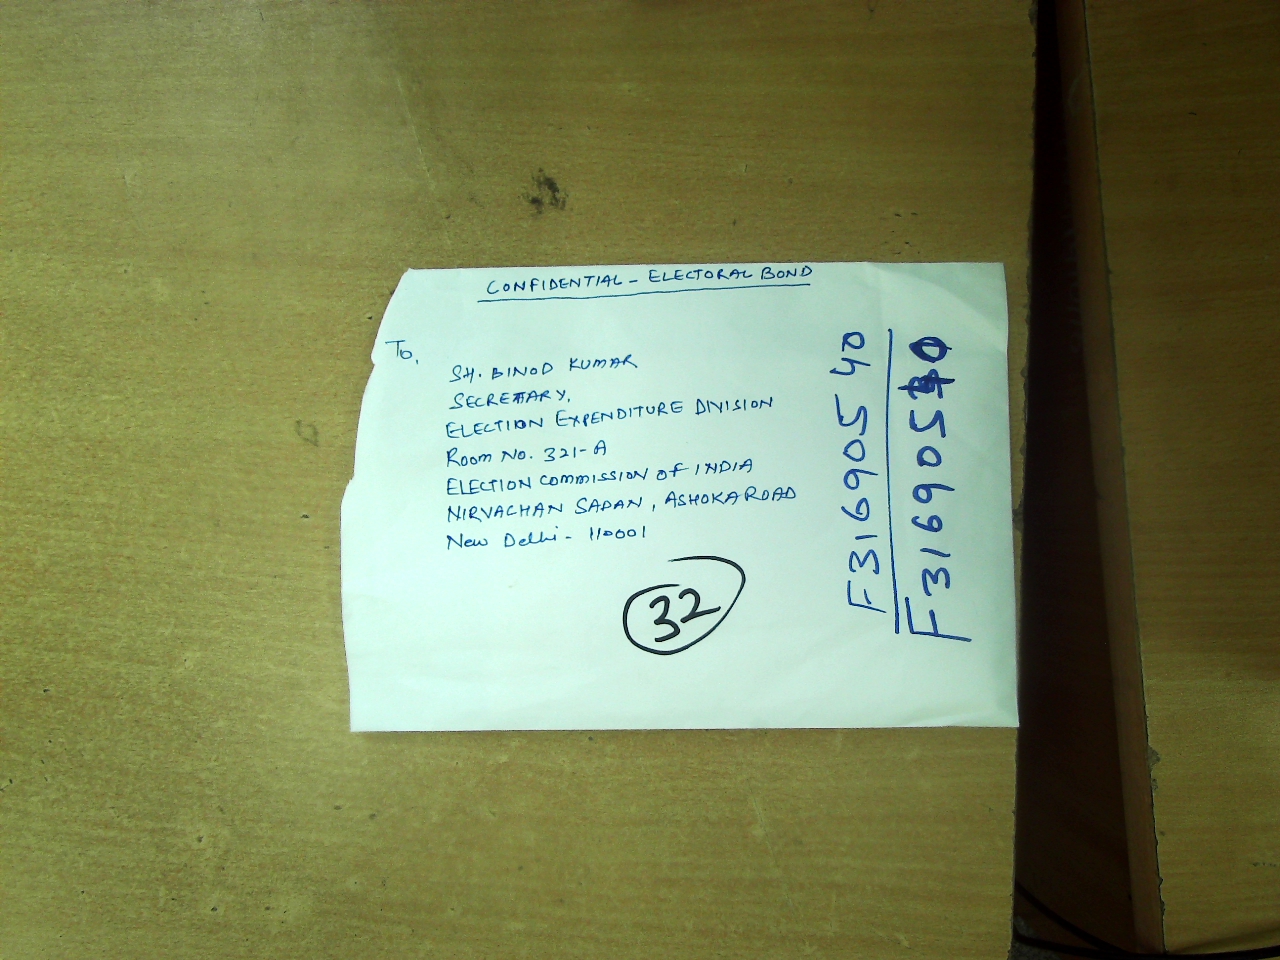 CONFIDENTIAL - ELECTORAL BOND
To,
SH. BINOD KUMAR
SECRETARY,
ELECTION EXPENDITURE DIVISION
Room No. 321-A
ELECTION COMMISSION OF INDIA
NIRVACHAN SADAN, ASHOKA ROAD
New Delhi - 110001
32
F31690540
F31690540